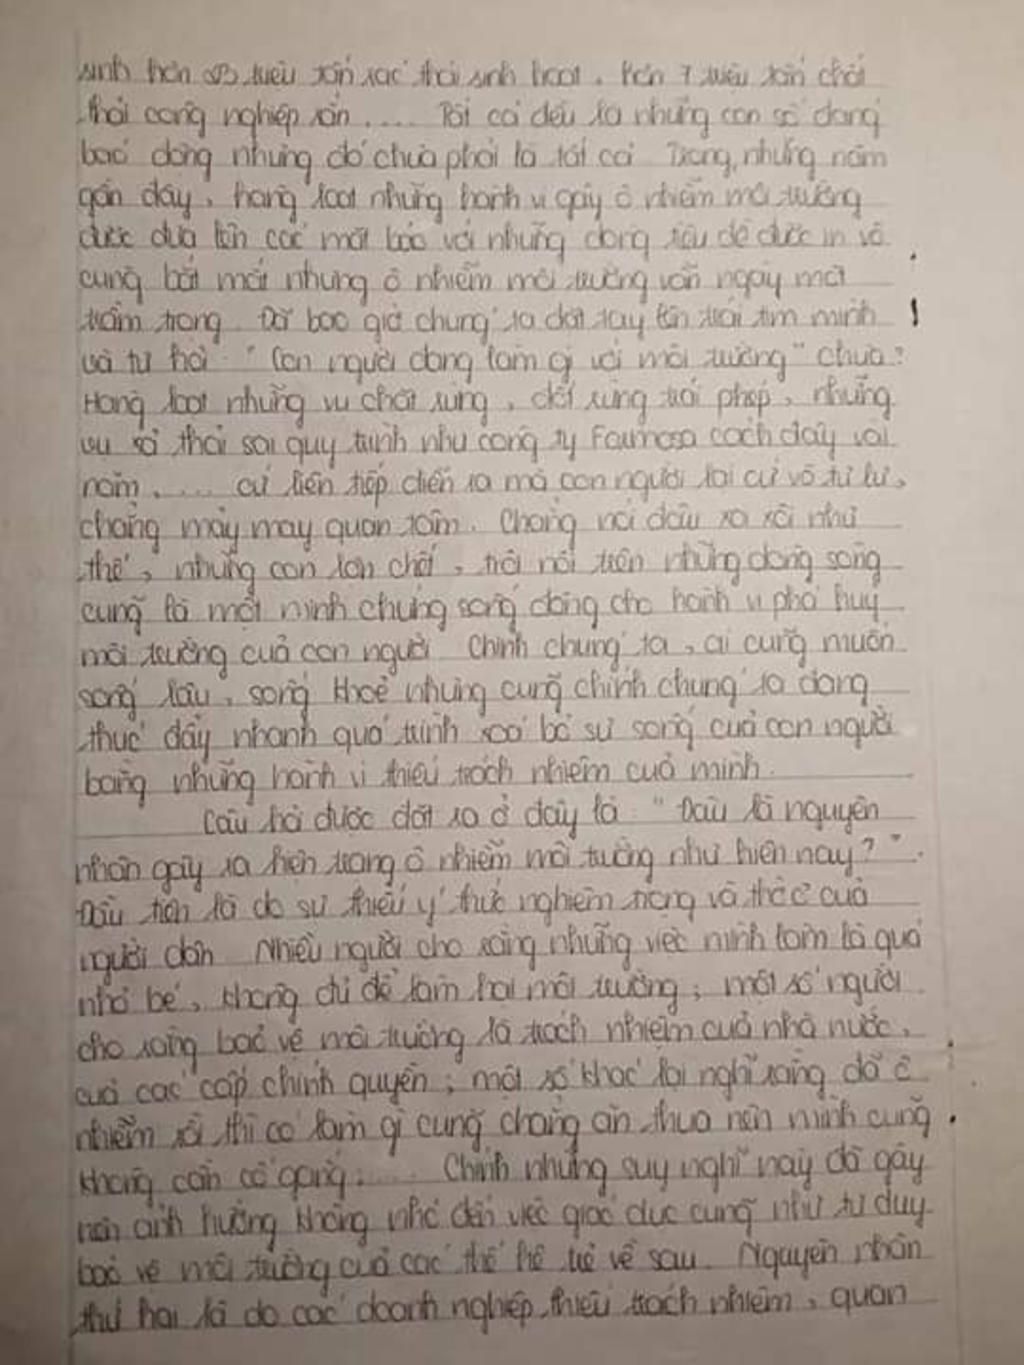 sinh hơn 23 triệu tấn rác thải sinh hoạt, hơn 7 triệu tấn chất
thải công nghiệp rắn.... Tất cả đều là những con số đáng
báo động nhưng đó chưa phải là tất cả. Trong những năm
gần đây, hàng loạt những hành vi gây ô nhiễm môi trường
được đưa lên các mặt báo với những dòng tiêu đề được in vô
cùng bắt mắt nhưng ô nhiễm môi trường vẫn ngày một
trầm trọng. Đã bao giờ chúng ta đặt tay lên trái tim mình
và tự hỏi "Con người đang làm gì với môi trường" chưa?
Hàng loạt những vụ chặt rừng, đốt rừng trái phép, những
vụ xả thải sai quy trình như công ty Formosa cách đây vài
năm,.... cứ liên tiếp diễn ra mà con người lại cứ vô tư lự,
chẳng mảy may quan tâm. Chẳng nói đâu xa xôi như
thế, những con lợn chết, trôi nổi trên những dòng sông
cũng là một minh chứng sống động cho hành vi phá huỷ
môi trường của con người. Chính chúng ta, ai cũng muốn
sống lâu, sống khoẻ nhưng cũng chính chúng ta đang
thúc đẩy nhanh quá trình xoá bỏ sự sống của con người
bằng những hành vi thiếu trách nhiệm của mình.
Câu hỏi được đặt ra ở đây là "Đâu là nguyên
nhân gây ra hiện trạng ô nhiễm môi trường như hiện nay?".
Đầu tiên là do sự thiếu ý thức nghiêm trọng và thờ ơ của
người dân. Nhiều người cho rằng những việc mình làm là quá
nhỏ bé, không đủ để làm hại môi trường; một số người
cho rằng bảo vệ môi trường là trách nhiệm của nhà nước,
của các cấp chính quyền; một số khác lại nghĩ rằng đã ô
nhiễm rồi thì có làm gì cũng chẳng ăn thua nên mình cũng
không cần cố gắng;.... Chính những suy nghĩ này đã gây
nên ảnh hưởng không nhỏ đến việc giáo dục cũng như tư duy
bảo vệ môi trường của các thế hệ trẻ về sau. Nguyên nhân
thứ hai là do các doanh nghiệp thiếu trách nhiệm, quan